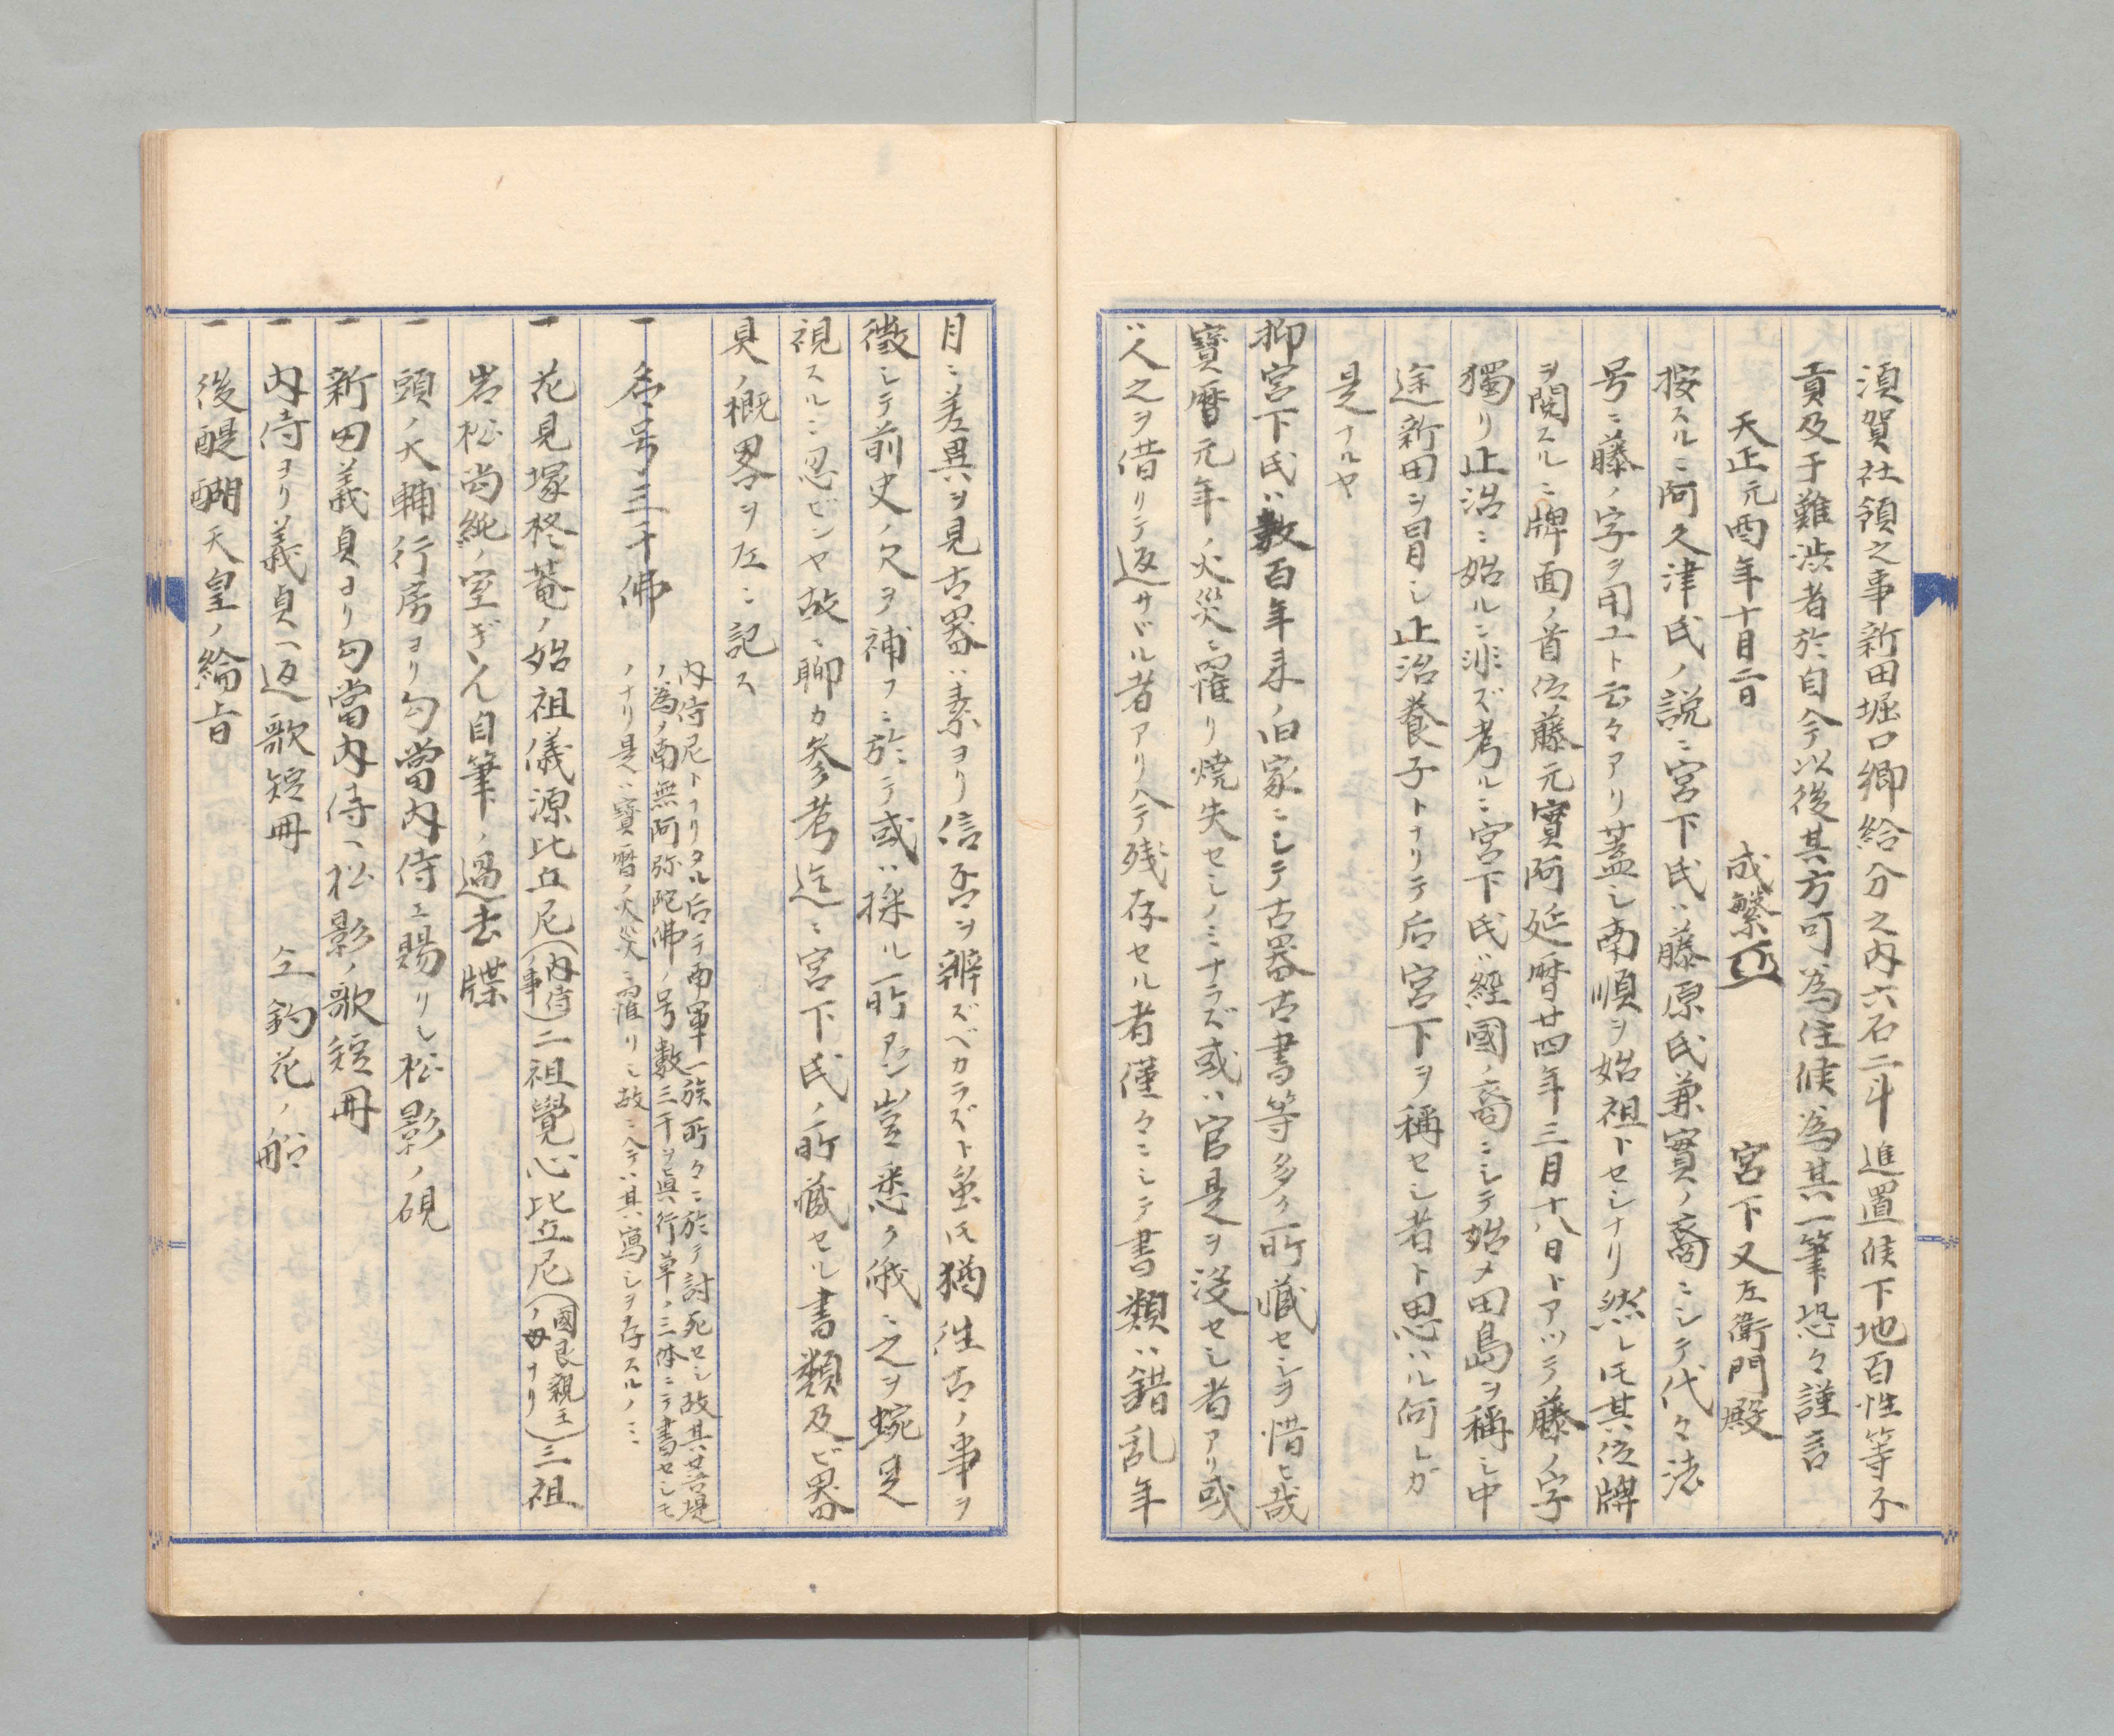 須賀社領之事新田堀口郷給分之内六石二斗進置候下地百性等不
貢及于難渋者於自今以後其方可為住候為其一筆恐々謹言
天正元酉年十月二日　成繁　宮下又左衛門殿
按スルニ阿久津氏ノ説ニ宮下氏ハ藤原氏兼實ノ裔ニシテ代々法
号ニ藤ノ字ヲ用ユト云々アリ蓋シ南順ヲ始祖トセシナリ然レ𪜈其位牌
ヲ閲スルニ牌面ノ首位藤元實阿延暦廿四年三月十八日トアツテ藤ノ字
獨リ止治ニ始ルニ非ズ考ルニ宮下氏ハ經國ノ裔ニシテ始メ田島ヲ稱シ中
途新田ヲ冒シ止治養子トナリテ后宮下ヲ稱セシ者ト思ハル何レガ
是ナルヤ
抑宮下氏ハ数百年来ノ旧家ニシテ古器古書等多ク所藏セシヲ惜ヒ哉
寳暦元年ノ火災ニ罹リ焼失セシノミナラズ或ハ官是ヲ没セシ者アリ或
ハ人之ヲ借リテ返サヾル者アリ今残存セル者僅々ニシテ書類ハ錯乱年
月ニ差異ヲ見古器ハ素ヨリ信否ヲ辨ズベカラズト虽𪜈猶徃古ノ事ヲ
徴シテ前史ノ欠ヲ補フニ於テ或ハ採ル所アラン豈悉ク俄ニ之ヲ
視スルニ忍ビンヤ故ニ聊カ参考迄ニ宮下氏ノ所藏セル書類及ビ器
具ノ概畧ヲ左ニ記ス
一　名号三千佛
内侍尼トナリタル后チ南軍一族所々ニ於テ討死セシ故其菩提
ノ為ノ南無阿弥陀佛ノ号數三千ヲ眞行草ノ三体ニテ書セシモ
ノナリ是ハ寳暦ノ火災ニ罹リシ故ニ今ハ其寫シヲ存スルノミ
一　花見塚柊菴ノ始祖儀源比丘尼（内侍ノ事）二祖覺心比丘尼（國良親王ノ母ナリ）三祖
岩松尚純ノ室ぎん自筆ノ過去牒
一　頭ノ大輔行房ヨリ勾當内侍エ賜リシ松影ノ硯
一　新田義貞ヨリ勾當内侍ヘ松影ノ歌短冊
一　内侍ヨリ義貞ヘ返歌短冊　仝釣花ノ船
一　後醍醐天皇ノ綸旨